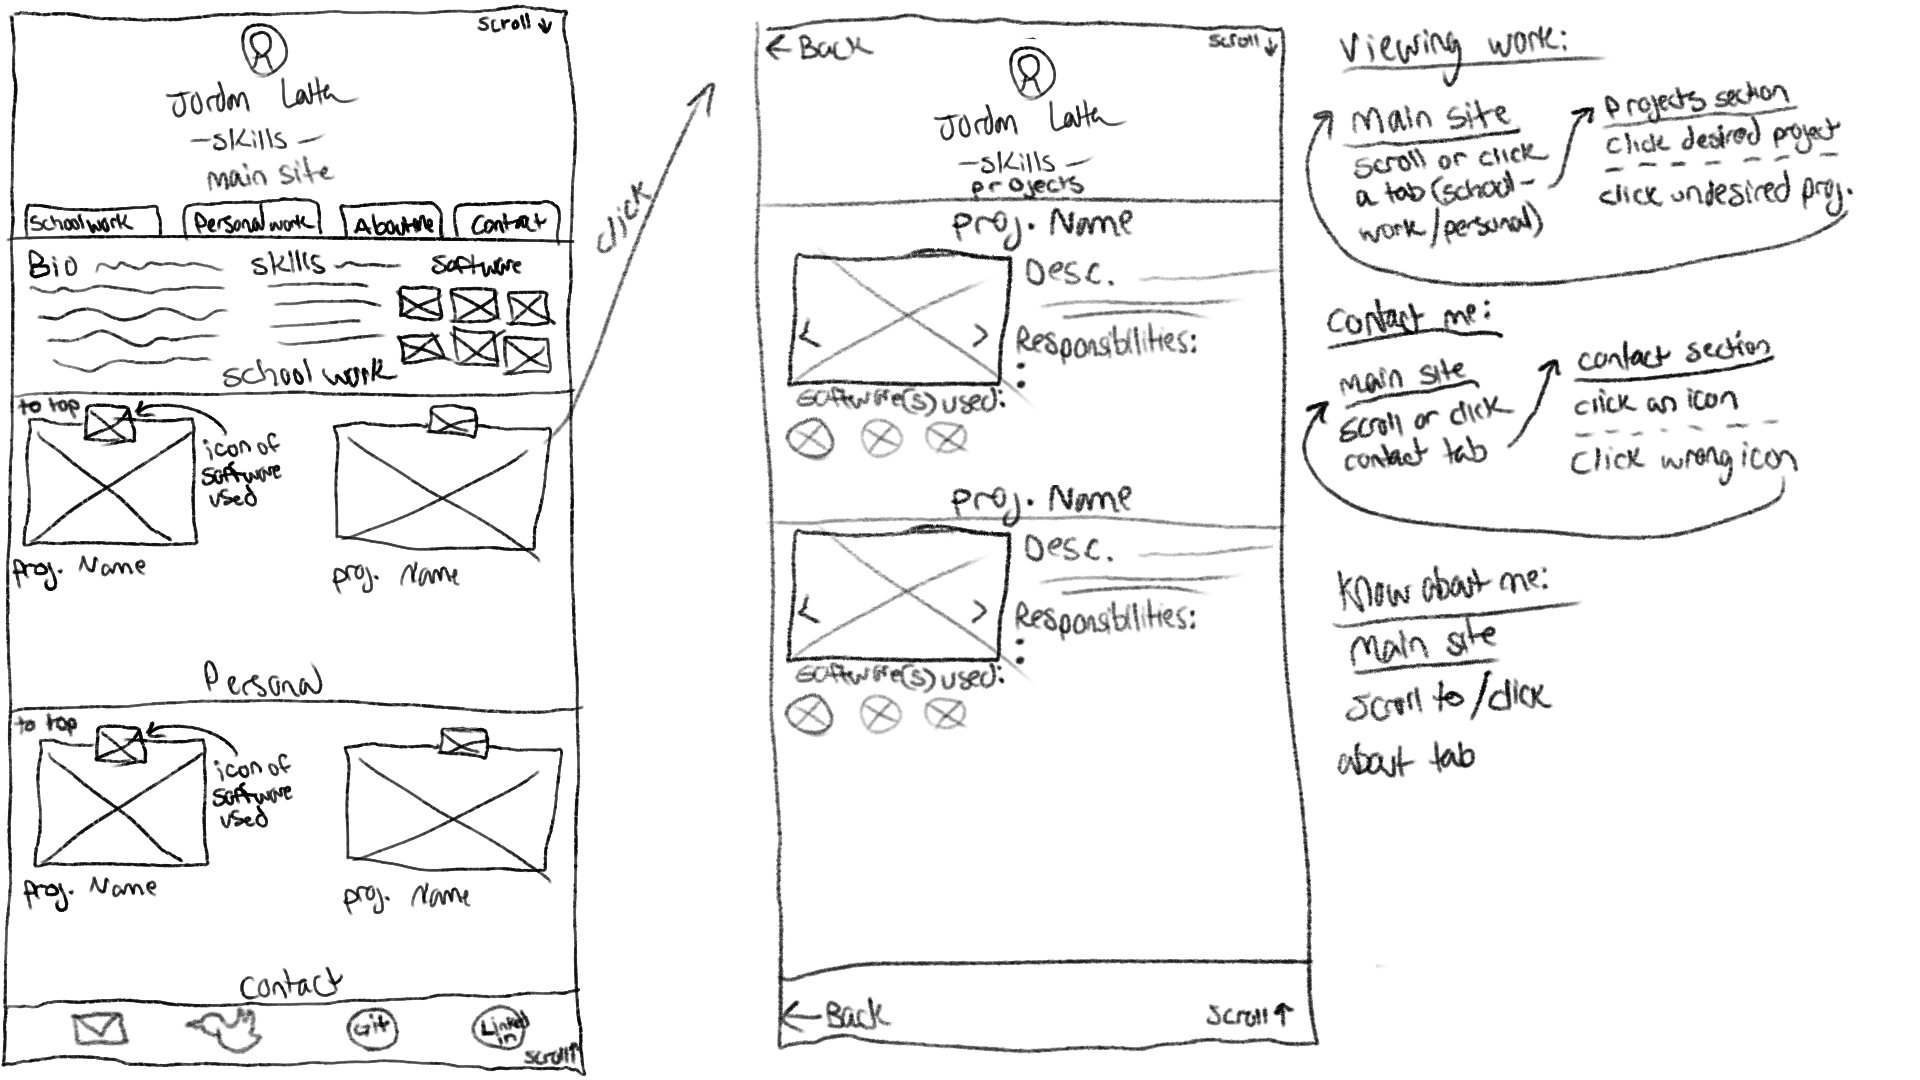 scroll ↓
Jordan Latta
-skills-
main site
Schoolwork
Personal work
About me
Contact
Bio
skills
Software
school work
to top
icon of
software
used
proj. Name
proj. Name
Personal
to top
icon of
software
used
proj. Name
proj. Name
contact
Git
Linked
in
scroll↑
click
← Back
scroll ↓
Jordan Latta
-skills-
projects
proj. Name
Desc.
< >
Responsibilities:
software(s) used:
proj. Name
Desc.
< >
Responsibilities:
software(s) used:
← Back
scroll↑
Viewing work:
Main site
scroll or click
a tab (school-
work/personal)
projects section
click desired project
click undesired proj.
Contact me:
main site
scroll or click
contact tab
contact section
click an icon
click wrong icon
Know about me:
Main site
scroll to/click
about tab